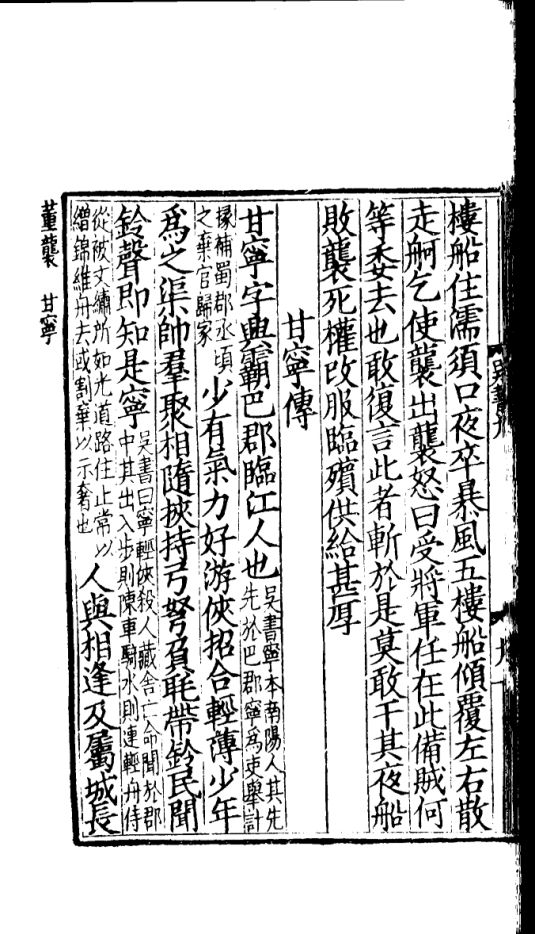 樓船住濡須口夜卒暴風五樓船傾覆左右散
走舸乞使襲出襲怒曰受將軍任在此備賊何
等委去也敢復言此者斬於是莫敢干其夜船
敗襲死權改服臨殯供給甚厚
甘寧傳
甘寧字興霸巴郡臨江人也吳書寧本南陽人其先先於巴郡寧爲吏舉計
掾補蜀郡丞頃之棄官歸家少有氣力好游俠招合輕薄少年
爲之渠帥羣聚相隨挾持弓弩負毦帶鈴民聞
鈴聲即知是寧吳書曰寧輕俠殺人藏舍亡命聞於郡中其出入步則陳車騎水則連輕舟侍
從被文繡所如光道路住止常以繒錦維舟去或割棄以示奢也人與相逢及屬城長
董襲 甘寧